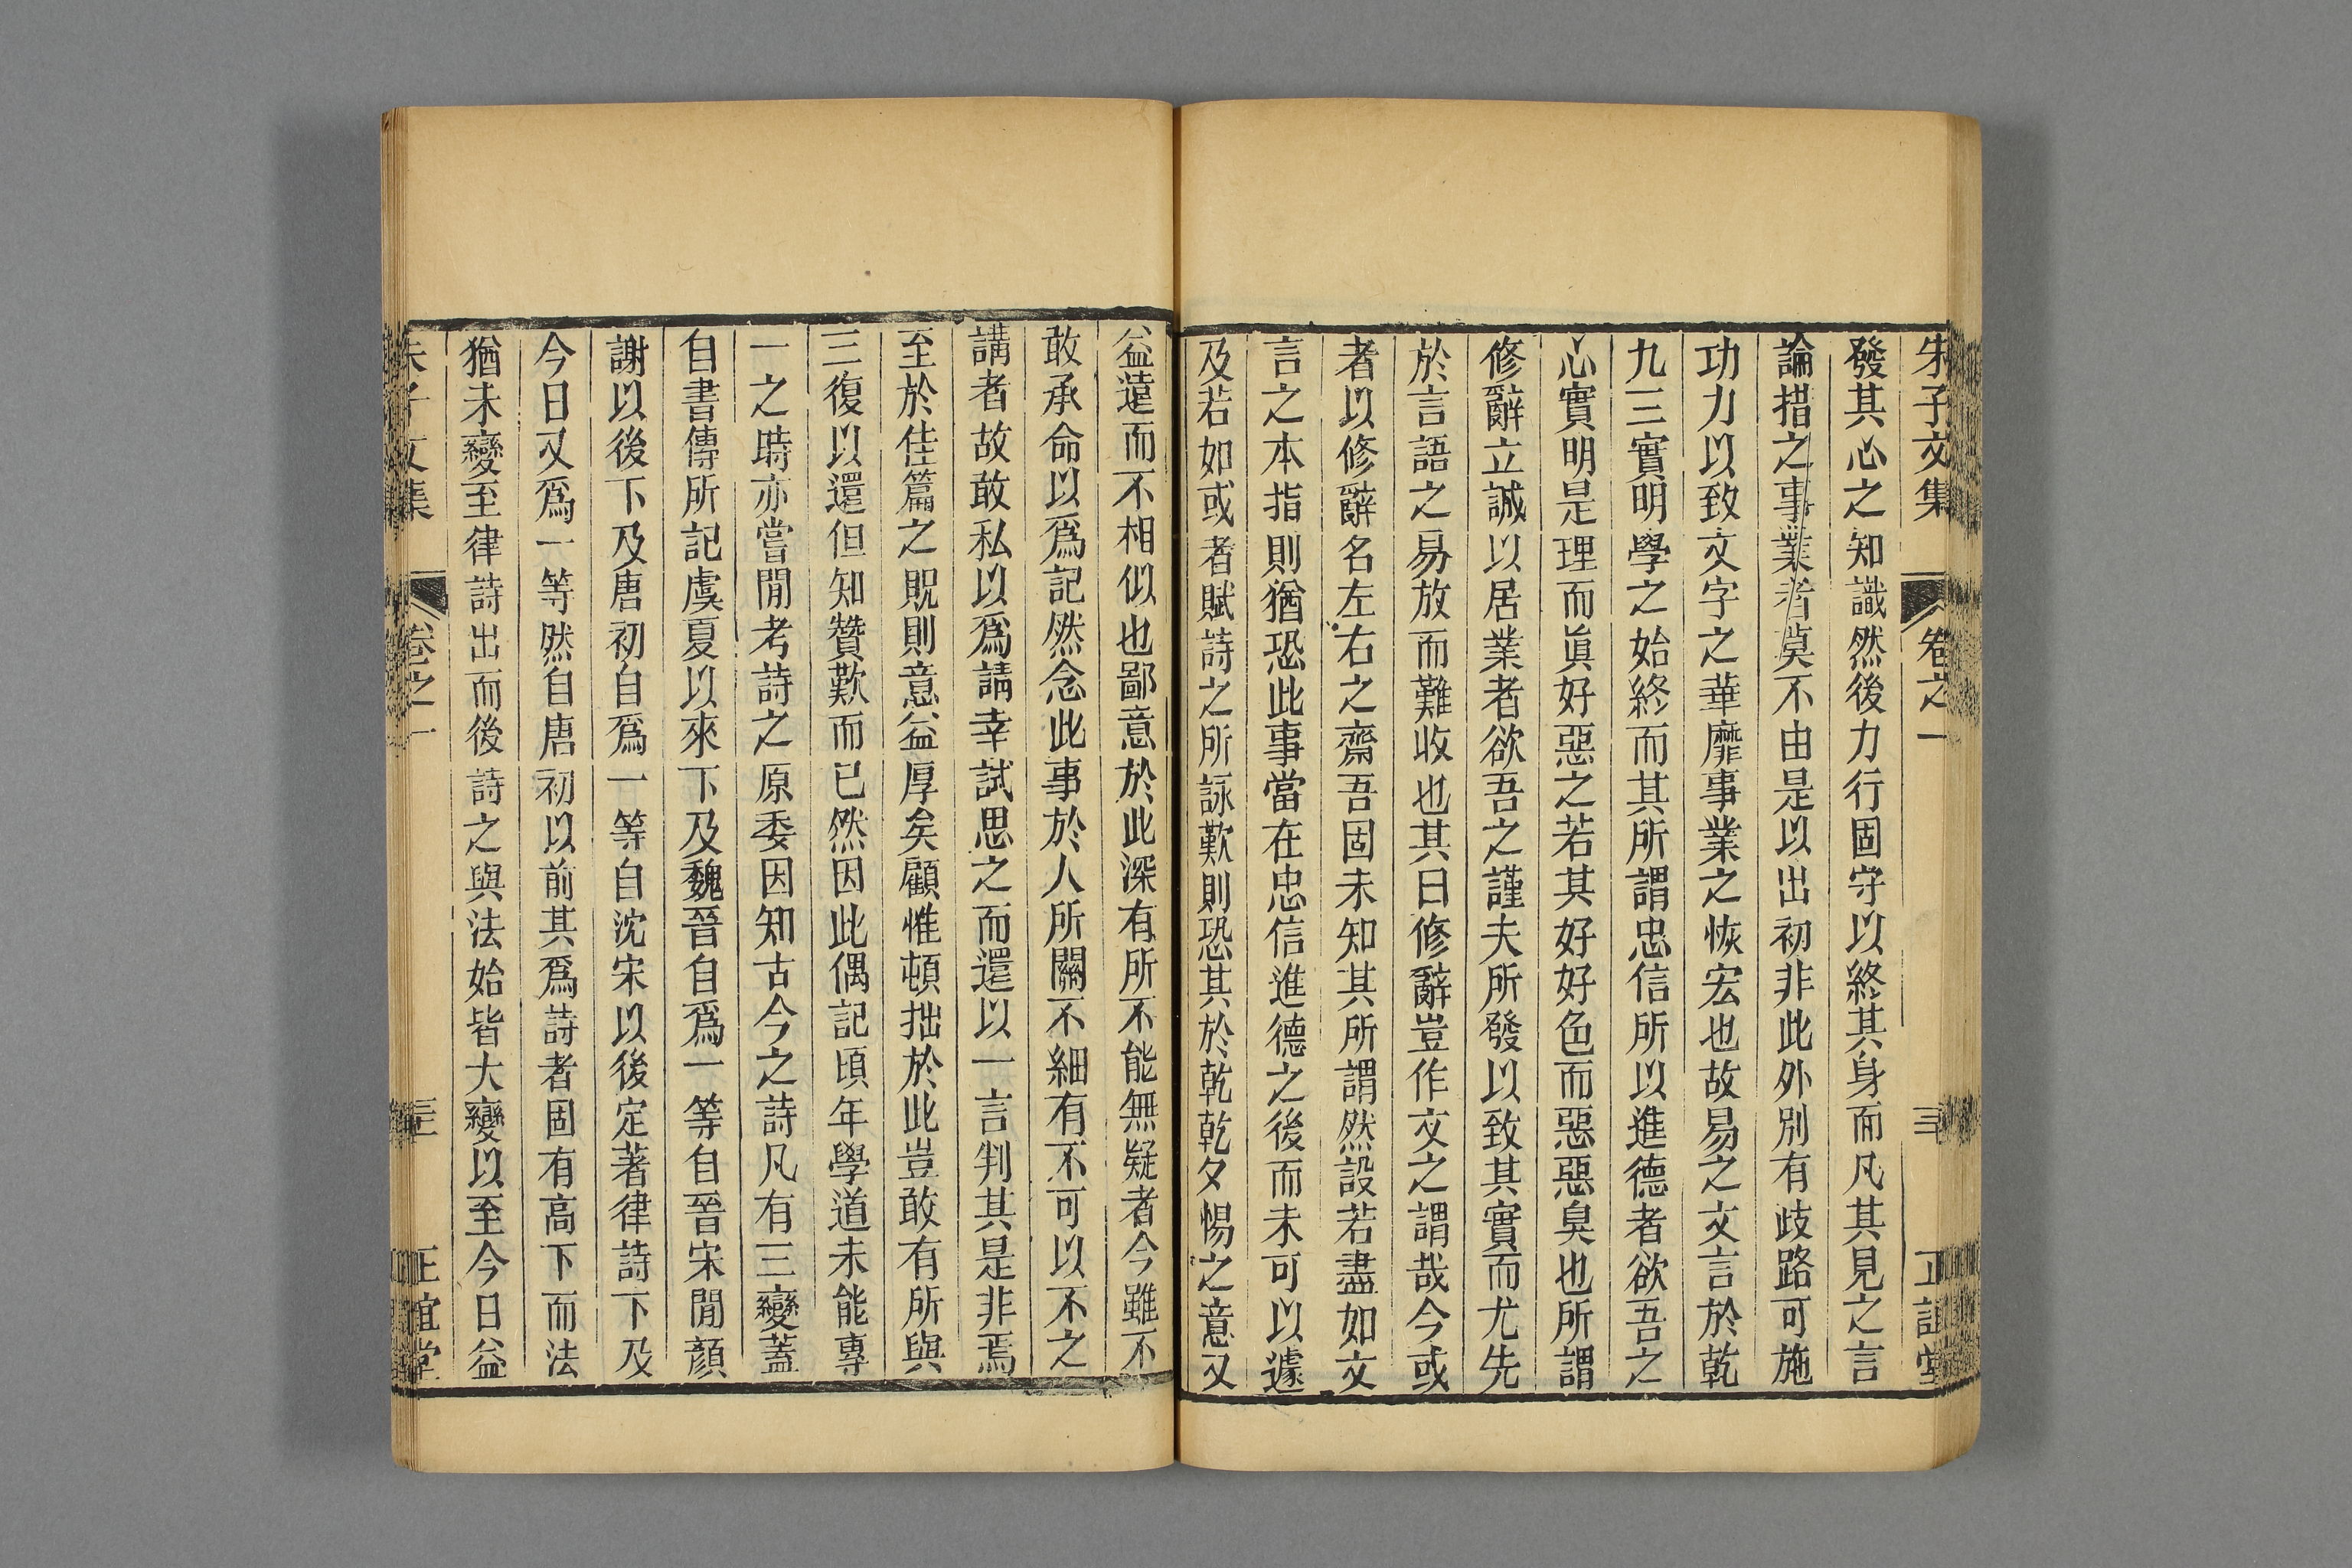 朱子文集 卷之一 三 正誼堂
發其心之知識然後力行固守以終其身而凡其見之言
論措之事業者莫不由是以出初非此外別有歧路可施
功力以致文字之華靡事業之恢宏也故易之文言於乾
九三實明學之始終而其所謂忠信所以進德者欲吾之
心實明是理而眞好惡之若其好好色而惡惡臭也所謂
修辭立誠以居業者欲吾之謹夫所發以致其實而尤先
於言語之易放而難收也其曰修辭豈作文之謂哉今或
者以修辭名左右之齋吾固未知其所謂然設若盡如文
言之本指則猶恐此事當在忠信進德之後而未可以遽
及若如或者賦詩之所詠歎則恐其於乾乾夕惕之意又
益遠而不相似也鄙意於此深有所不能無疑者今雖不
敢承命以爲記然念此事於人所關不細有不可以不之
講者故敢私以爲請幸試思之而還以一言判其是非焉
至於佳篇之貺則意益厚矣顧惟頓拙於此豈敢有所與
三復以還但知贊歎而已然因此偶記頃年學道未能專
一之時亦嘗閒考詩之原委因知古今之詩凡有三變蓋
自書傳所記虞夏以來下及魏晉自爲一等自晉宋閒顏
謝以後下及唐初自爲一等自沈宋以後定著律詩下及
今日又爲一等然自唐初以前其爲詩者固有高下而法
猶未變至律詩出而後詩之與法始皆大變以至今日益
朱子文集 卷之一 正誼堂